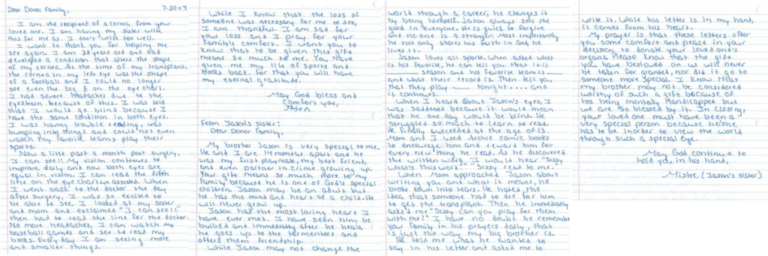 Dear Donor Family, 7-20-09
I am the recipient of a cornea from your
loved one. I am having my sister write
this for me as I don't write well.
I want to thank you for helping me
see again. I am 38 years old and had
developed a condition that alters the shape
of my cornea. At the time of my transplant,
the cornea in my left eye was the shape
of a football and I could no longer
see even the big E on the eye chart.
I had severe headaches due to the
eyestrain because of this. I was told
that I would go blind because I
have the same condition in both eyes.
I was having trouble reading, was
bumping into things and could not even
watch my favorite teams play their
sports.
Now a little past a month post surgery,
I can see!! My vision continues to
improve daily and now both eyes are
equal in vision. I can read the fifth
line on the eye chart on
When I went to the doctor the day
after surgery, I was so excited to
be able to see. I looked at my sister
and mom and exclaimed "I can see!!"
then had to read the line for the doctor.
No more headaches, I can watch my
baseball games and see to read my
books. Every day I am seeing more
and smaller things.
While I know that the loss of
someone was necessary for me to see,
I am thankful. I am sad for
your loss and I pray for your
family's comfort. I want you to
know that to be given this gift
means so much to me. You have
given me my life of sports and
books back. For that you will have
my eternal gratitude.
May God bless and
comfort you,
Jason
From Jason's Sister:
Dear Donor Family,
My brother Jason is very special to me.
He and I are 18 months apart and he
was my first playmate, my best friend,
and even partner in crime growing up.
Your gift means so much more to my
family because he is one of God's special
children. Jason may be an adult but
he has the mind and heart of a child. He
will never grow up.
Jason has the most loving heart I
have ever met. I have seen him be
bullied and immediately after he heals,
he goes up to the tormentors and
offers them friendship.
While Jason may not change the
world through a career, he changes it
by being himself. Jason always sees the
good in everyone. He is quick to forgive
and no one is a stranger. Most importantly
he not only shares his faith in God, he
lives it.
Jason loves all sports. When asked what
is his favorite, he can tell you that it's
season and his favorite teams
and what their record is. Then he'll tell you
that they play tonight... and
it continues.
When I heard about Jason's eyes, I
was saddened because it would mean
that he one day would be blind. He
struggled so much to learn to read.
He finally succeeded at the age of 13.
Mom and I used Archie comic books
to encourage him and reward him for
every new thing he read. As he discovered
the written word, I would hear "Sissy
what's this word?" "Sissy read to me."
When Mom approached Jason about
writing you and what it meant, he
broke down into tears. He hated the
idea that someone had to die for him
to get the transplant. Then he immediately
asked me "Sissy can you pray for them
with me?" I have no doubt he remembers
your family in his prayers daily, that
is just the way my big brother is.
He told me what he wanted to
say in his letter and asked me to
write it. While his letter is in my hand,
it comes from his heart.
My prayer is that these letters offer
you some comfort and peace in your
decision to donate your loved one's
organs. Please know that the gift
you have bestowed on us will never
be taken for granted, nor did it go to
someone more special. I know that
my brother may not be considered
worthy of such a gift because of
his being mentally handicapped but
we are so blessed by it. In closing,
your loved one must have been a
very special person because he/she
has to be in order to view the world
through such a special eye.
May God continue to
hold you in his hand,
(Jason's sister)